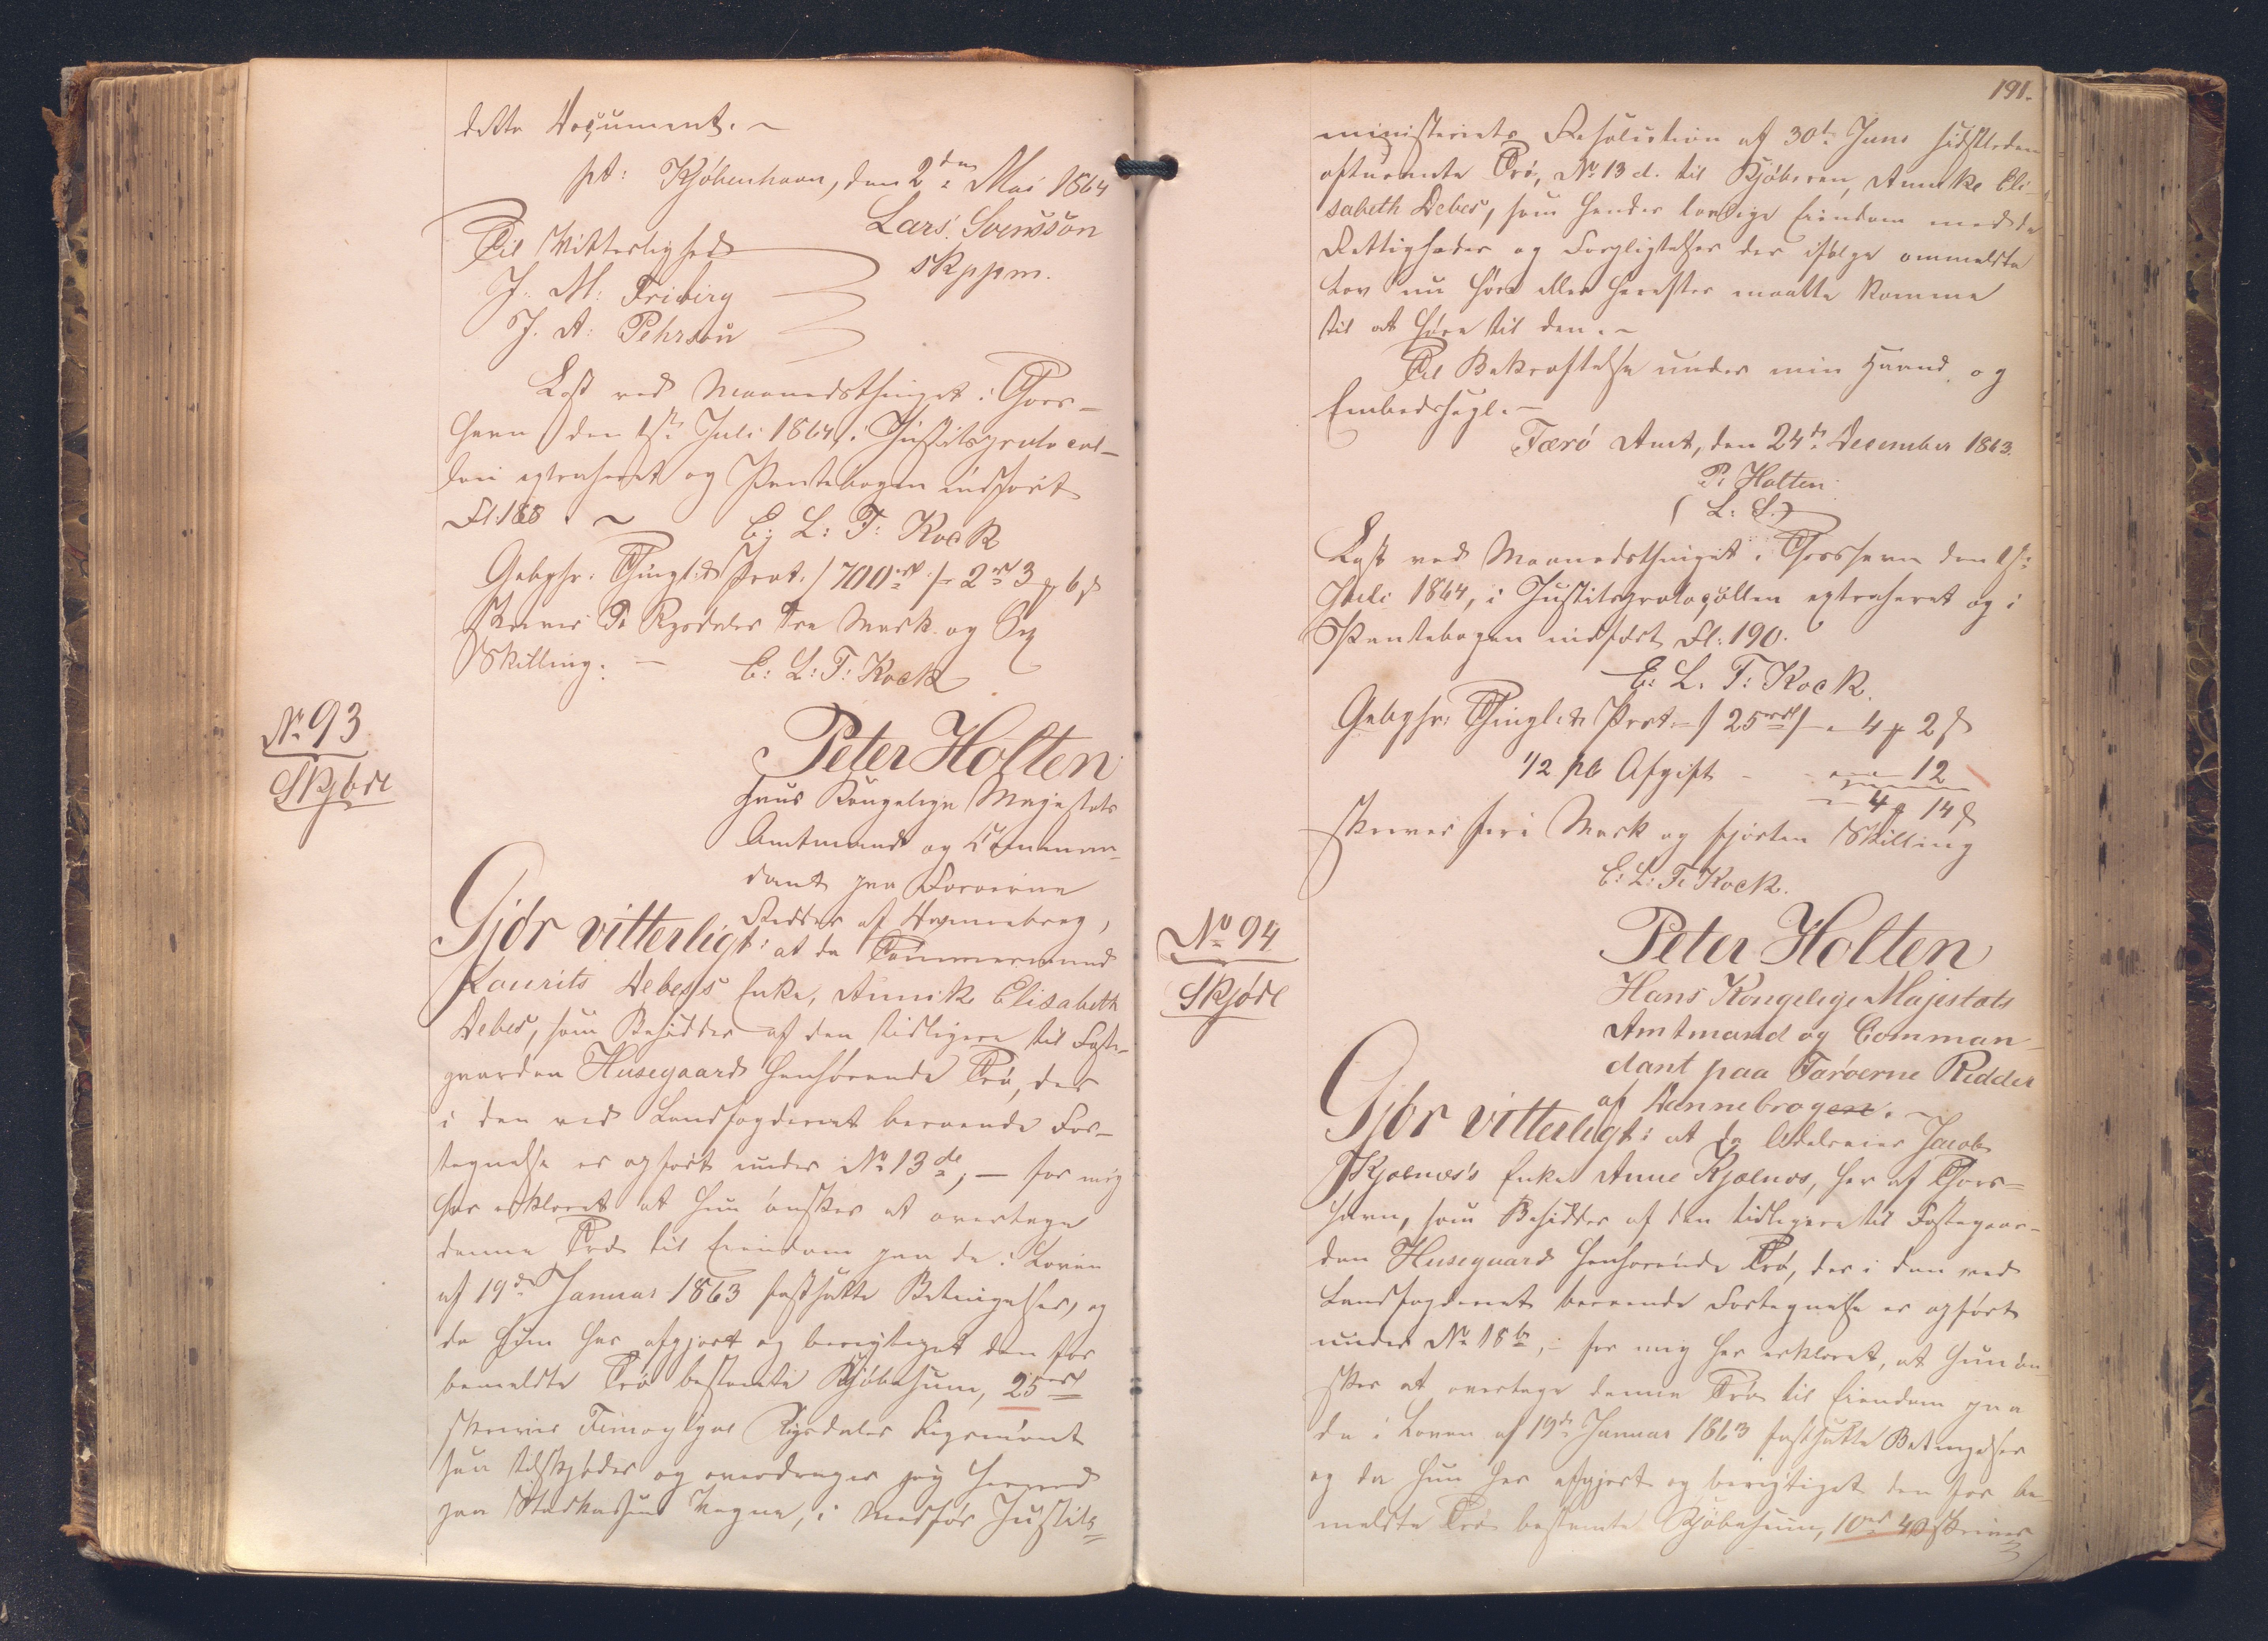 dette Document. ~
pt: Kjøbenhavn, den 2den Mai 1864
Lars Svensson
skppm.
Til Vitterlighed
J. M: Friberg
J. A: Pehrson
Læst ved Maanedsthinget i Thors-
havn den 1ste Juli 1864, i Justitsprotocol-
len extraheret og Pantebogen indført
Fl. 188. ~
E: L: T: Kock
Gebyhr. Thingl: & Prot. / 700rd / 2rd 3 # 6 s
skriver To Rigsdaler Tre Mark og Sex
Skilling. —
E: L: T: Kock
No 93
Skjøde
Peter Holten
Hans Kongelige Majestæts
Amtmand og Comman-
dant paa Færøerne
Ridder af Dannebrog,
Gjör vitterligt: at da Tømmermand
Laurits Debes's Enke, Annike Elisabeth
Debes, som Besidder af den tidligere til Fæste-
gaarden Husegaard henhørende Trø, der
i den ved Landfogderiet beroende For-
tegnelse er opført under No 13 d, — for mig
har erklæret at hun ønsker at overtage
denne Trø til Eiendom paa de i Loven
af 19de Januar 1863 fastsatte Betingelser, og
da hun har afgjort og berigtiget den for
bemeldte Trø bestemte Kjøbesum, 25rd
skriver Femogtyve Rigsdaler Rigsmønt
saa tilskjøder og overdrager jeg herved
paa Statskassens Vegne, i Medfør Justits-
191.
ministeriets Resolution af 30te Juni sidstleden
ofnævnte Trø, No 13 d. til Kjøberen, Annike Eli-
sabeth Debes, som hendes lovlige Eiendom med de
Rettigheder og Forpligtelser der ifølge ommeldte
Lov nu høre eller herefter maatte komme
til at høre til den. ~
Til Bekræftelse under min Haand og
Embedssegl. ~
Færø Amt, den 24de December 1863.
P. Holten
( L. S. )
Læst ved Maanedsthinget i Thorshavn den 1ste
Juli 1864, i Justitsprotocollen extraheret og i
Pantebogen indført Fl: 190.
E: L. T: Kock.
Gebyhr: Thingl: & Prot. / 25rd / - 4 # 2 s
1/2 pC Afgift - - 12
- 4 # 14 s
skriver fire Mark og fjorten Skilling
E: L: T. Kock.
No 94
Skjøde
Peter Holten
Hans Kongelige Majestæts
Amtmand og Comman-
dant paa Færøerne Ridder
af Dannebrogen. ~
Gjör vitterligt: at da Odelseier Jacob
Kjælnæs's Enke Anne Kjælnæs, her af Thors-
havn, som Besidder af den tidligere til Fæstegaar-
den Husegaard henhørende Trø, der i den ved
Landfogderiet beroende Fortegnelse er opført
under No 18 b, - for mig har erklæret, at hun øn-
sker at overtage denne Trø til Eiendom paa
de i Loven af 19de Januar 1863 fastsatte Betingelser
og da hun har afgjort og berigtiget den for be-
meldte Trø bestemte Kjøbesum, 10rd 40 s skriver